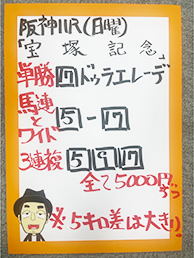 阪神11R(日曜)
「宝塚記念」
単勝 17 ドゥラエレーデ
馬連とワイド 5-17
3連複 5 9 17
全て5000円ずつ
※5キロ差は大きい!